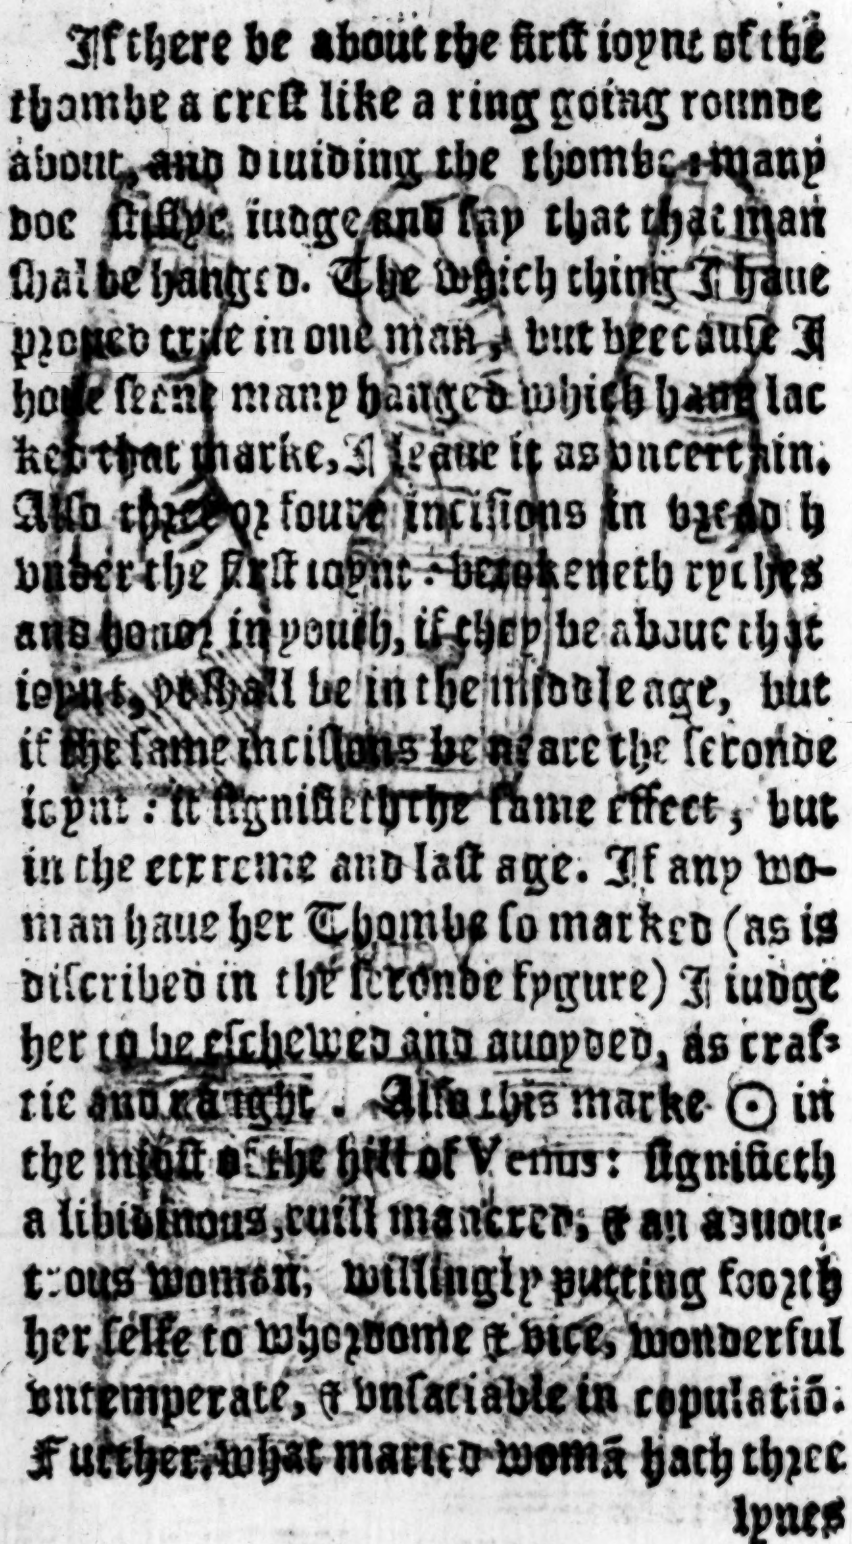 If there be about the first ioynt of the
thombe a crest like a ring going rounde
about, and diuiding the thombe: many
doe stiflye iudge and say that that man
shal be hanged. The which thing I haue
proued true in one man, but beecause I
houe seene many hanged which haue lac
ked that marke, I leaue it as vncertain.
Also three or foure incisions in bread h
vnder the first ioynt: betokeneth ryches
and honor in youth, if they be aboue that
ioynt, yt shall be in the middle age, but
if the same incisions be neare the seconde
ioynt: it signifieth the same effect, but
in the extreme and last age. If any wo-
man haue her Thombe so marked (as is
discribed in the seconde fygure) I iudge
her to be eschewed and auoyded, as craf-
tie and naught. Also this marke ☉ in
the midst of the hill of Venus: signifieth
a libidinous, euill manered, & an aduou-
trous woman, willingly putting foorth
her selfe to whordome & vice, wonderful
vntemperate, & vnsatiable in copulatiō.
Further, what maried womā hath three
lynes